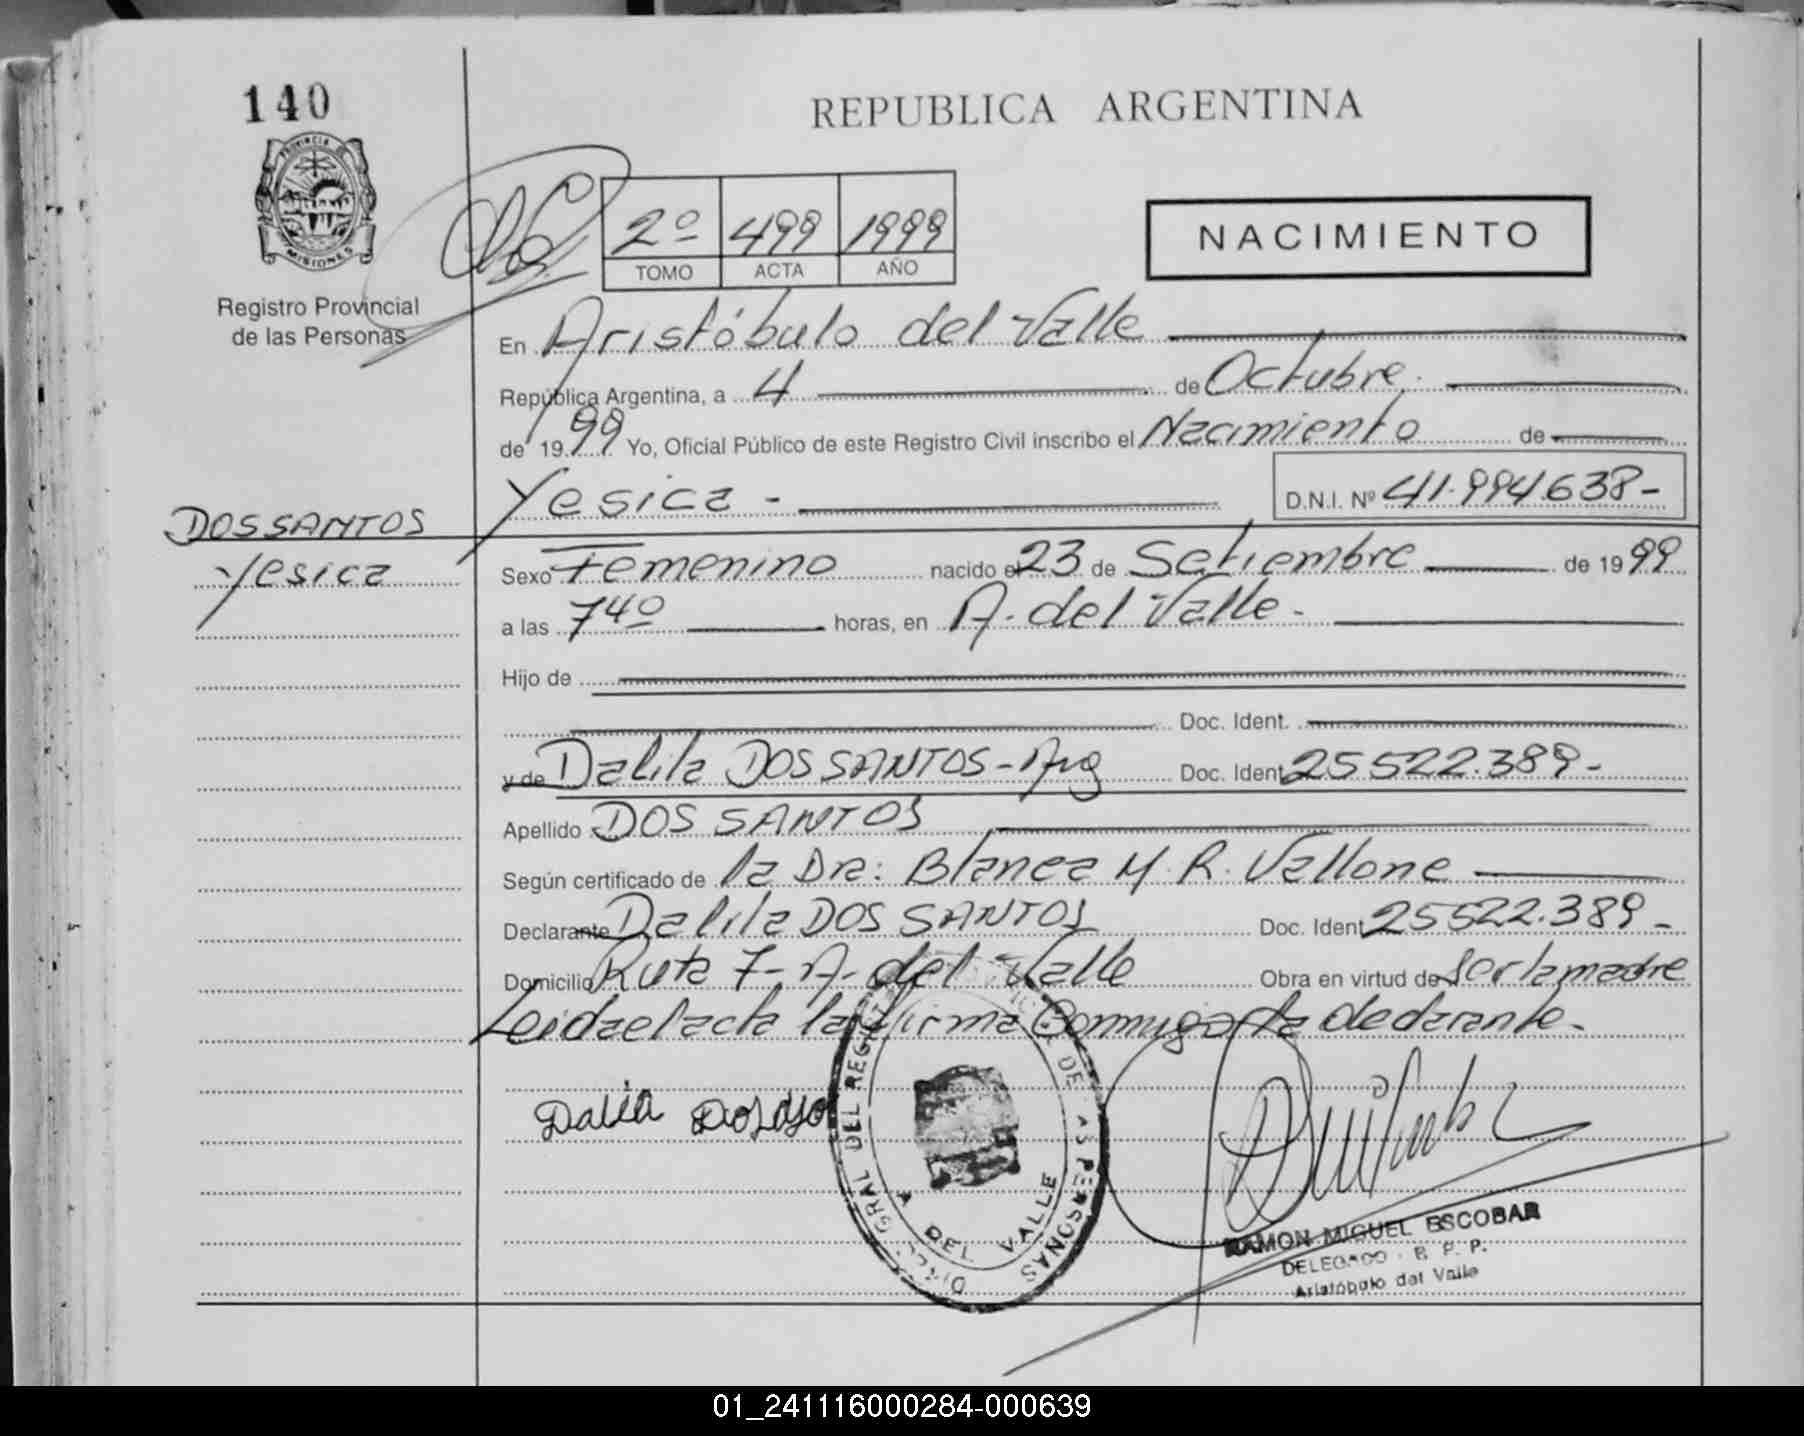 140
REPUBLICA ARGENTINA
PROVINCIA DE
MISIONES
Registro Provincial
de las Personas
2º 499 1999
TOMO ACTA AÑO
NACIMIENTO
En Aristóbulo del Valle
República Argentina, a 4 de Octubre
de 1999 Yo, Oficial Público de este Registro Civil inscribo el Nacimiento de
Yesica - D.N.I. Nº 41.994.638-
DOS SANTOS
Yesica
Sexo Femenino nacido el 23 de Setiembre de 1999
a las 7 40 horas, en A. del Valle -
Hijo de
Doc. Ident.
y de Dalila DOS SANTOS - Arg Doc. Ident 25522.389-
Apellido DOS SANTOS
Según certificado de la Dra: Blanca M. R. Vallone
Declarante Dalila DOS SANTOS Doc. Ident 25522.389-
Domicilio Ruta 7- A. del Valle Obra en virtud de ser la madre
Leida el acta la firma Conmigo la declarante-
DEL REGIST DE LAS PERSONAS
A DEL VALLE
RAMON MIGUEL ESCOBAR
DELEGADO - R. P. P.
Aristóbulo del Valle
01_241116000284-000639